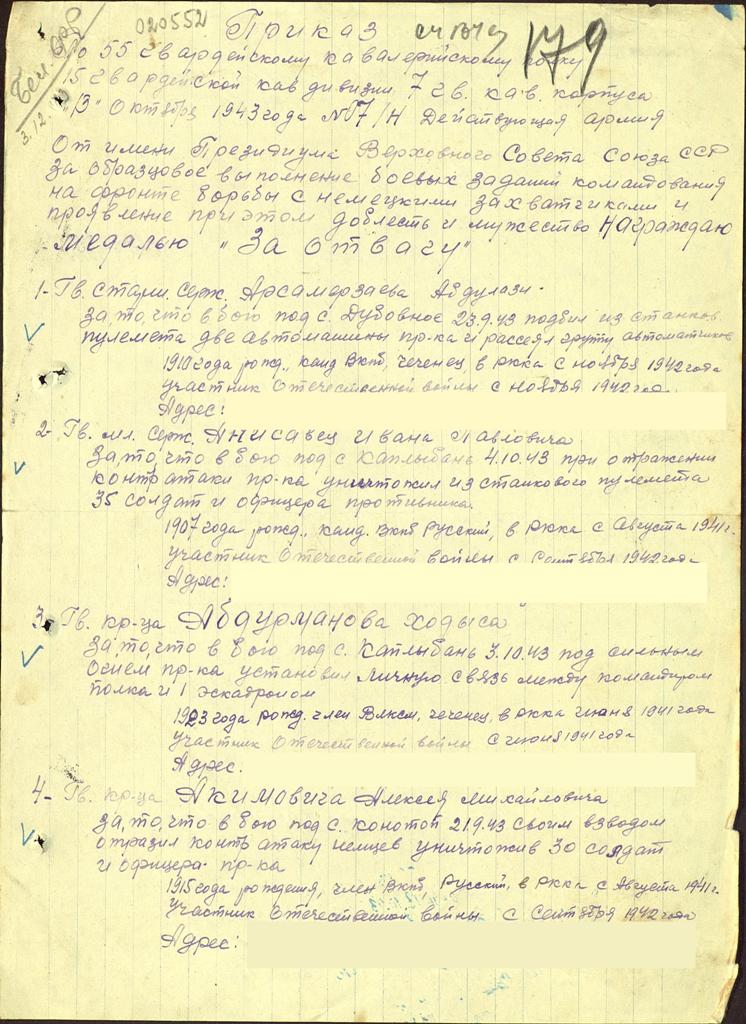 020552
Приказ
179
По 55 гвардейскому кавалерийскому полку
15 гвардейской кав дивизии 7 гв. кав. корпуса
"13" Октября 1943 года №17/Н Действующая армия
3.12.
От имени Президиума Верховного Совета Союза ССР
за образцовое выполнение боевых заданий командования
на фронте борьбы с немецкими захватчиками и
проявление при этом доблесть и мужество Награждаю
Медалью "За отвагу"
1- Гв. старш. серж. Арсамерзаева Абдулази
за, то, что в бою под с. Дубовное 23.9.43 подбил из станков.
пулемета две автомашины пр-ка и рассеял групу автоматчиков
1910 года рожд., канд ВКПб, чеченец, в РККА с ноября 1942 года
участник Отечественной войны с ноября 1942 год
Адрес:
2- Гв. мл. серж. Анисавец Ивана Павловича
за, то, что в бою под с Каплыбань 4.10.43 при отражении
контратаки пр-ка уничтожил из станкового пулемета
35 солдат и офицера противника.
1907 года рожд., канд. ВКПб Русский, в РККА с Августа 1941 г.
участник Отечественной войны с Сентября 1942 года
Адрес:
3. Гв. кр-ца Абдурманова Ходыса
за, то, что в бою под с. Каплыбань 3.10.43 под сильным
огнем пр-ка установил личную связь между командиром
полка и 1 эскадроном
1923 года рожд. член ВЛКСМ, чеченец, в РККА июня 1941 года
участник Отечественной войны с июня 1941 года
Адрес.
4- Гв. кр-ца Акимовича Алексея Михайловича
за, то, что в бою под с. Конотоп 21.9.43 своим взводом
отразил контратаку немцев уничтожив 30 солдат
и офицера пр-ка
1915 года рождения, член ВКПб, Русский, в РККА с Августа 1941 г.
участник Отечественной войны с Сентября 1942 года
Адрес: